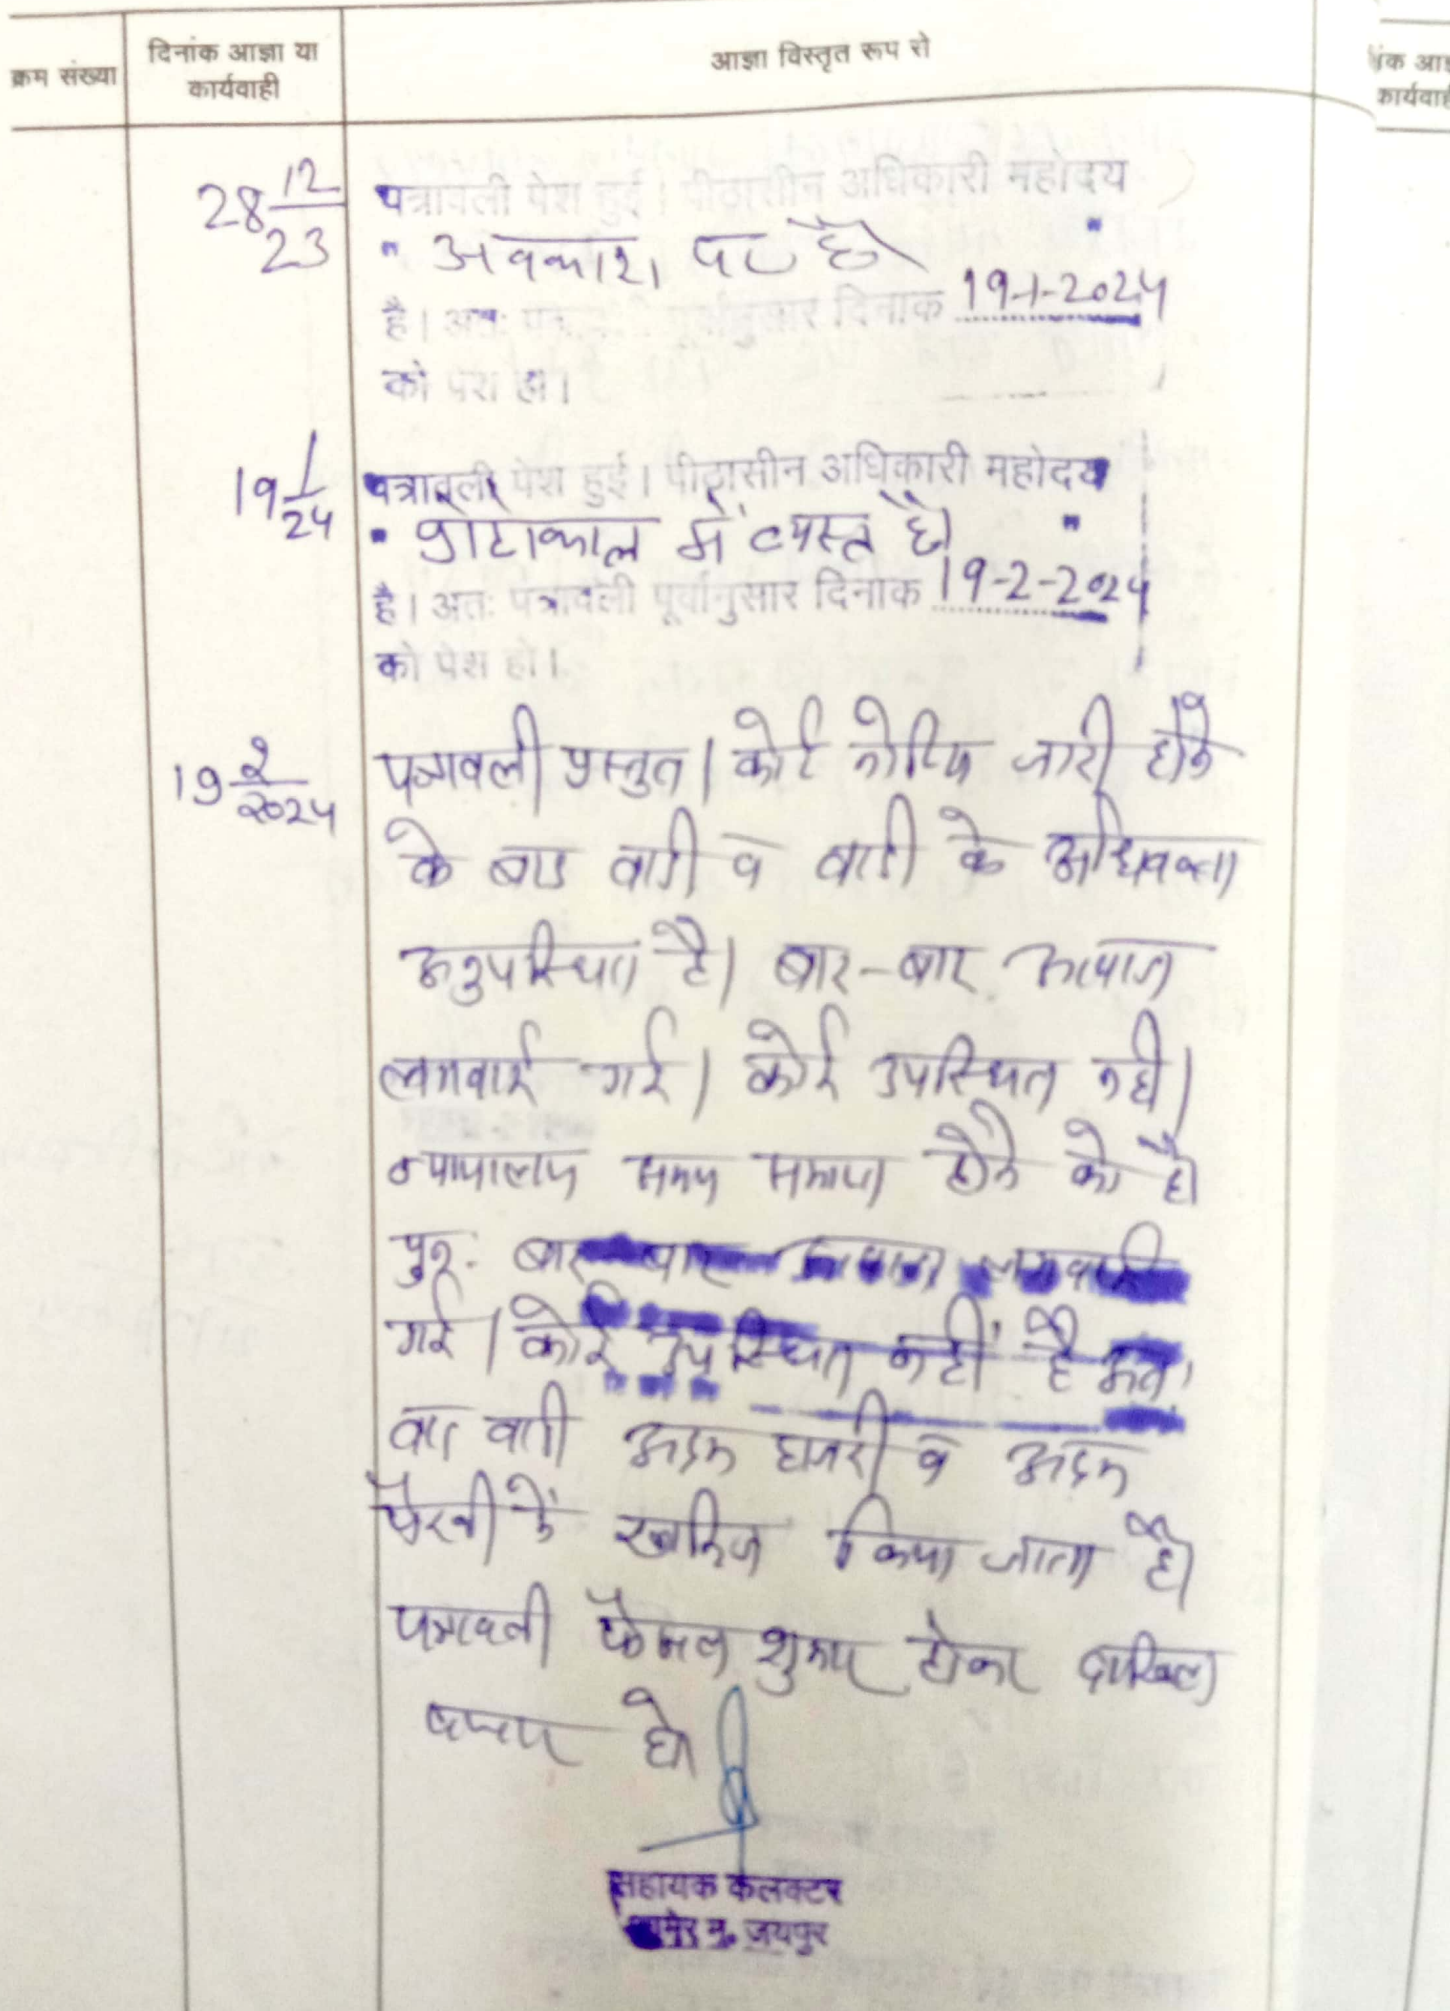 क्रम संख्या
दिनांक आज्ञा या
कार्यवाही
आज्ञा विस्तृत रूप से
कार्यवाही
28 12/23
पत्रावली पेश हुई। पीठासीन अधिकारी महोदय
" अवकाश पर है। "
है। अतः पत्रावली पूर्वानुसार दिनांक 19-1-2024
को पेश हो।
19 1/24
पत्रावली पेश हुई। पीठासीन अधिकारी महोदय
" प्रोटोकाल में व्यस्त है। "
है। अतः पत्रावली पूर्वानुसार दिनांक 19-2-2024
को पेश हो।
19 2/2024
पत्रावली प्रस्तुत। कोर्ट नोटिस जारी होने
के बाद वादी व वादी के अधिवक्ता
अनुपस्थित है। बार-बार आवाज
लगवाई गई। कोई उपस्थित नही।
न्यायालय समय समाप्त होने को है।
पुन: बार बार आवाज लगवाई
गई। कोई उपस्थित नहीं है अतः
वाद वादी अदम हाजरी व अदम
पैरवी में खारिज किया जाता है।
पत्रावली फैसल शुमार होकर दाखिल
दफ्तर हो।
सहायक कलक्टर
आमेर मु. जयपुर